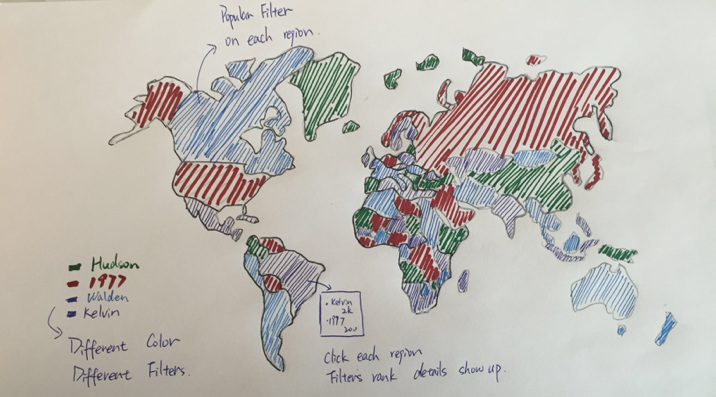 Popular Filter
on each region.
Hudson
1977
Walden
Kelvin
Different Color
Different Filters.
• Kelvin
2k
• 1977
200
Click each region
Filters rank details show up.